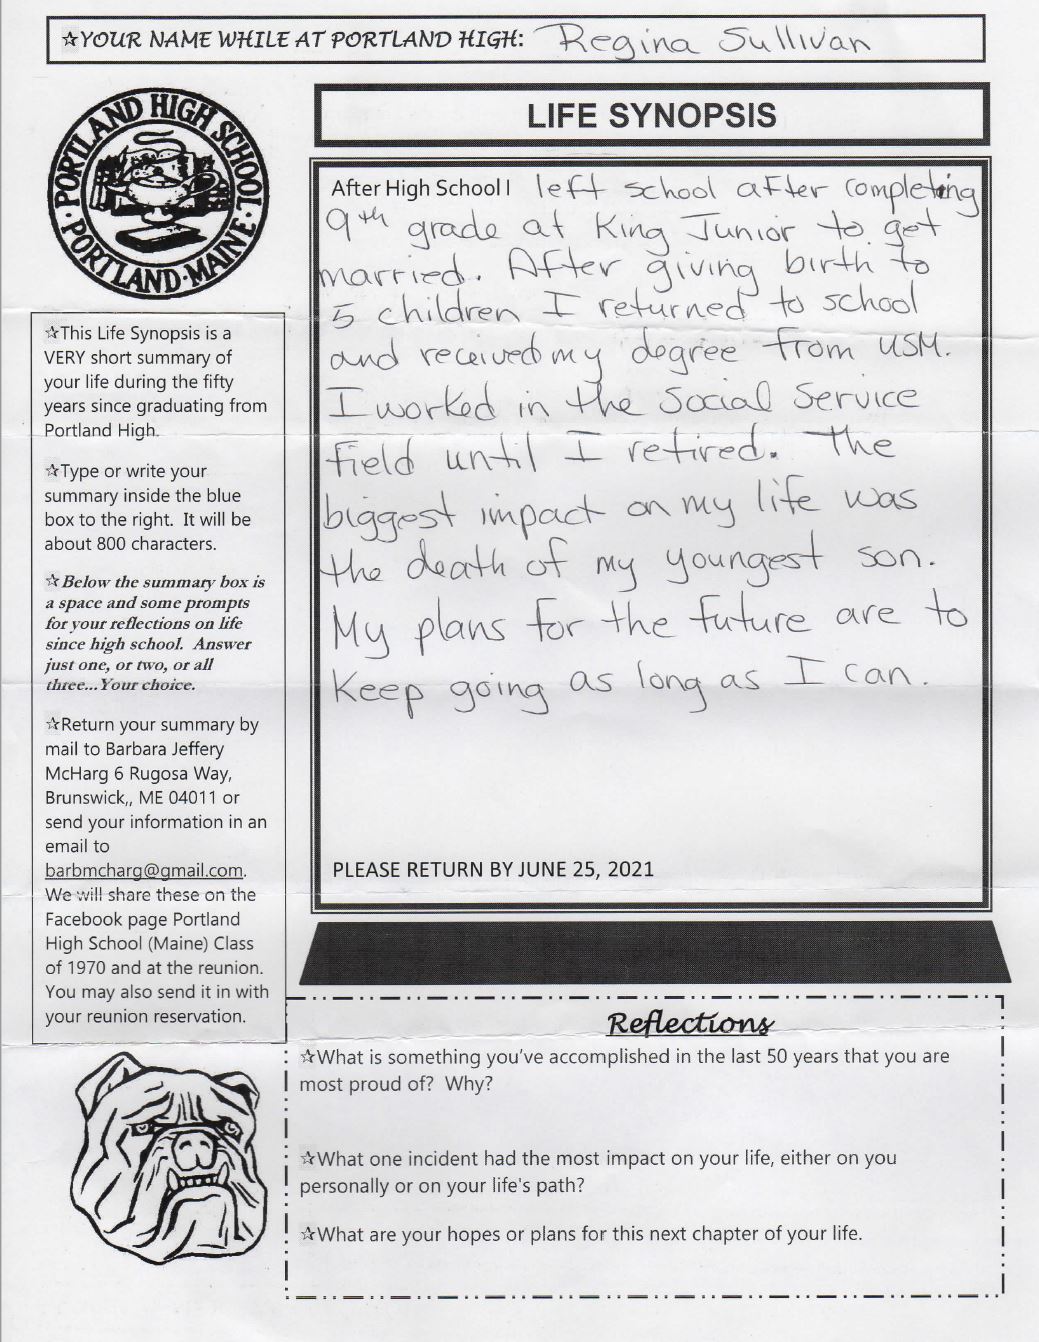 ☆YOUR NAME WHILE AT PORTLAND HIGH: Regina Sullivan
PORTLAND HIGH SCHOOL · PORTLAND · MAINE ·
LIFE SYNOPSIS
After High School I left school after completing
9th grade at King Junior to get
married. After giving birth to
5 children I returned to school
and received my degree from USM.
I worked in the Social Service
field until I retired. The
biggest impact on my life was
the death of my youngest son.
My plans for the future are to
Keep going as long as I can.
PLEASE RETURN BY JUNE 25, 2021
☆This Life Synopsis is a
VERY short summary of
your life during the fifty
years since graduating from
Portland High.
☆Type or write your
summary inside the blue
box to the right. It will be
about 800 characters.
☆Below the summary box is
a space and some prompts
for your reflections on life
since high school. Answer
just one, or two, or all
three...Your choice.
☆Return your summary by
mail to Barbara Jeffery
McHarg 6 Rugosa Way,
Brunswick,, ME 04011 or
send your information in an
email to
barbmcharg@gmail.com.
We will share these on the
Facebook page Portland
High School (Maine) Class
of 1970 and at the reunion.
You may also send it in with
your reunion reservation.
Reflections
☆What is something you've accomplished in the last 50 years that you are
most proud of? Why?
☆What one incident had the most impact on your life, either on you
personally or on your life's path?
☆What are your hopes or plans for this next chapter of your life.